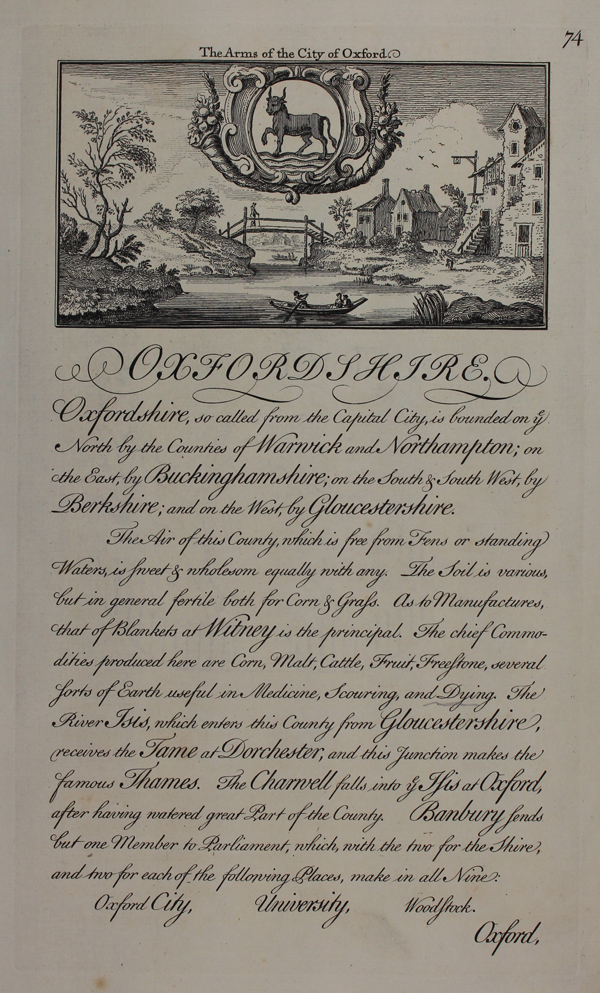 74
The Arms of the City of Oxford
OXFORDSHIRE.
Oxfordshire, so called from the Capital City, is bounded on yͤ
North by the Counties of Warwick and Northampton; on
the East, by Buckinghamshire; on the South & South West, by
Berkshire; and on the West, by Gloucestershire.
The Air of this County, which is free from Fens or standing
Waters, is ſweet & wholesom equally with any. The Soil is various,
but in general fertile both for Corn & Graſs. As to Manufactures,
that of Blankets at Witney is the principal. The chief Commo-
dities produced here are Corn, Malt, Cattle, Fruit, Freeſtone, several
ſorts of Earth useful in Medicine, Scouring, and Dying. The
River Isis, which enters this County from Gloucestershire,
receives the Tame at Dorchester, and this Junction makes the
famous Thames. The Charwell falls into yͤ Iſis at Oxford,
after having watered great Part of the County. Banbury ſends
but one Member to Parliament, which, with the two for the Shire,
and two for each of the following Places, make in all Nine:
Oxford City, University, Woodſtock.
Oxford,